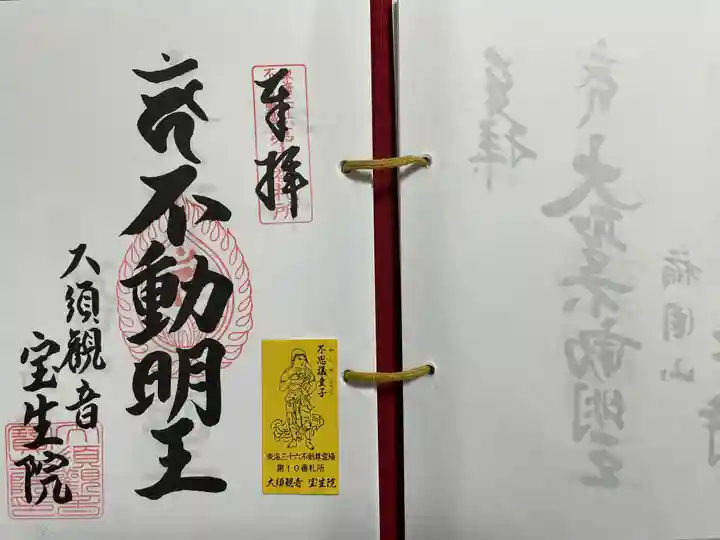 奉拝
不動明王
大須観音
宝生院
不思議童子
東海三十六不動尊霊場
第10番札所
大須観音 宝生院
大聖不動明王
福園山